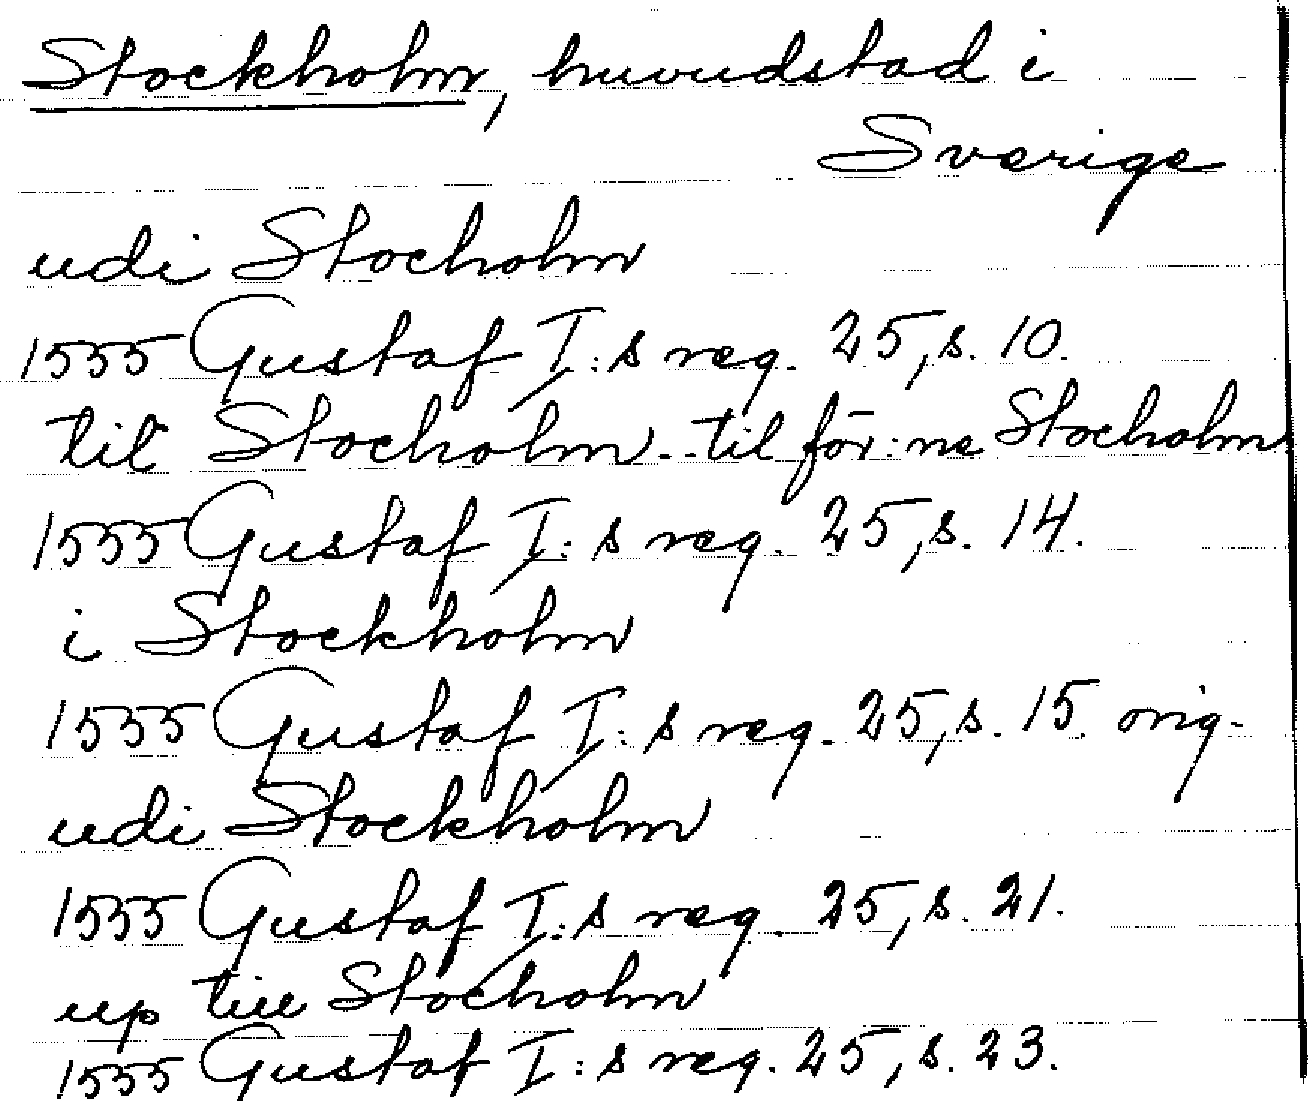 Stockholm, huvudstad i
Sverige
udi Stocholm
1555 Gustaf I:s reg. 25, s. 10.
til Stocholm - - til för:ne Stocholm
1555 Gustaf I:s reg. 25, s. 14.
i Stockholm
1555 Gustaf I:s reg. 25, s. 15. orig.
udi Stockholm
1555 Gustaf I:s reg. 25, s. 21.
up till Stocholm
1555 Gustaf I:s reg. 25, s. 23.